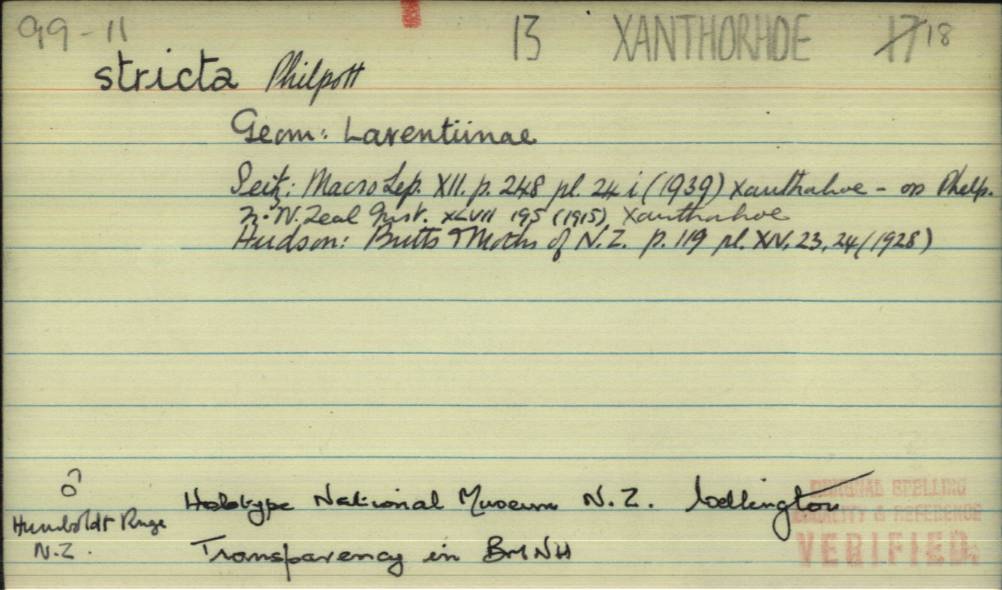 99-11 13 XANTHORHOE 17 18
stricta Philpott
Geom: Larentiinae
Seitz: Macro Lep. XII. p. 248 pl. 24 i (1939) Xanthorhoe - Philp.
N. Zeal Inst. XLVII 195 (1915), Xanthorhoe
Hudson: Butts & Moths of N.Z. p. 119 pl. XIV. 23, 24 (1928)
♂ Holotype National Museum N.Z. Wellington
Humboldt Range
N.Z. Transparency in BMNH
ORIGINAL SPELLING
LOCALITY & REFERENCE
VERIFIED.